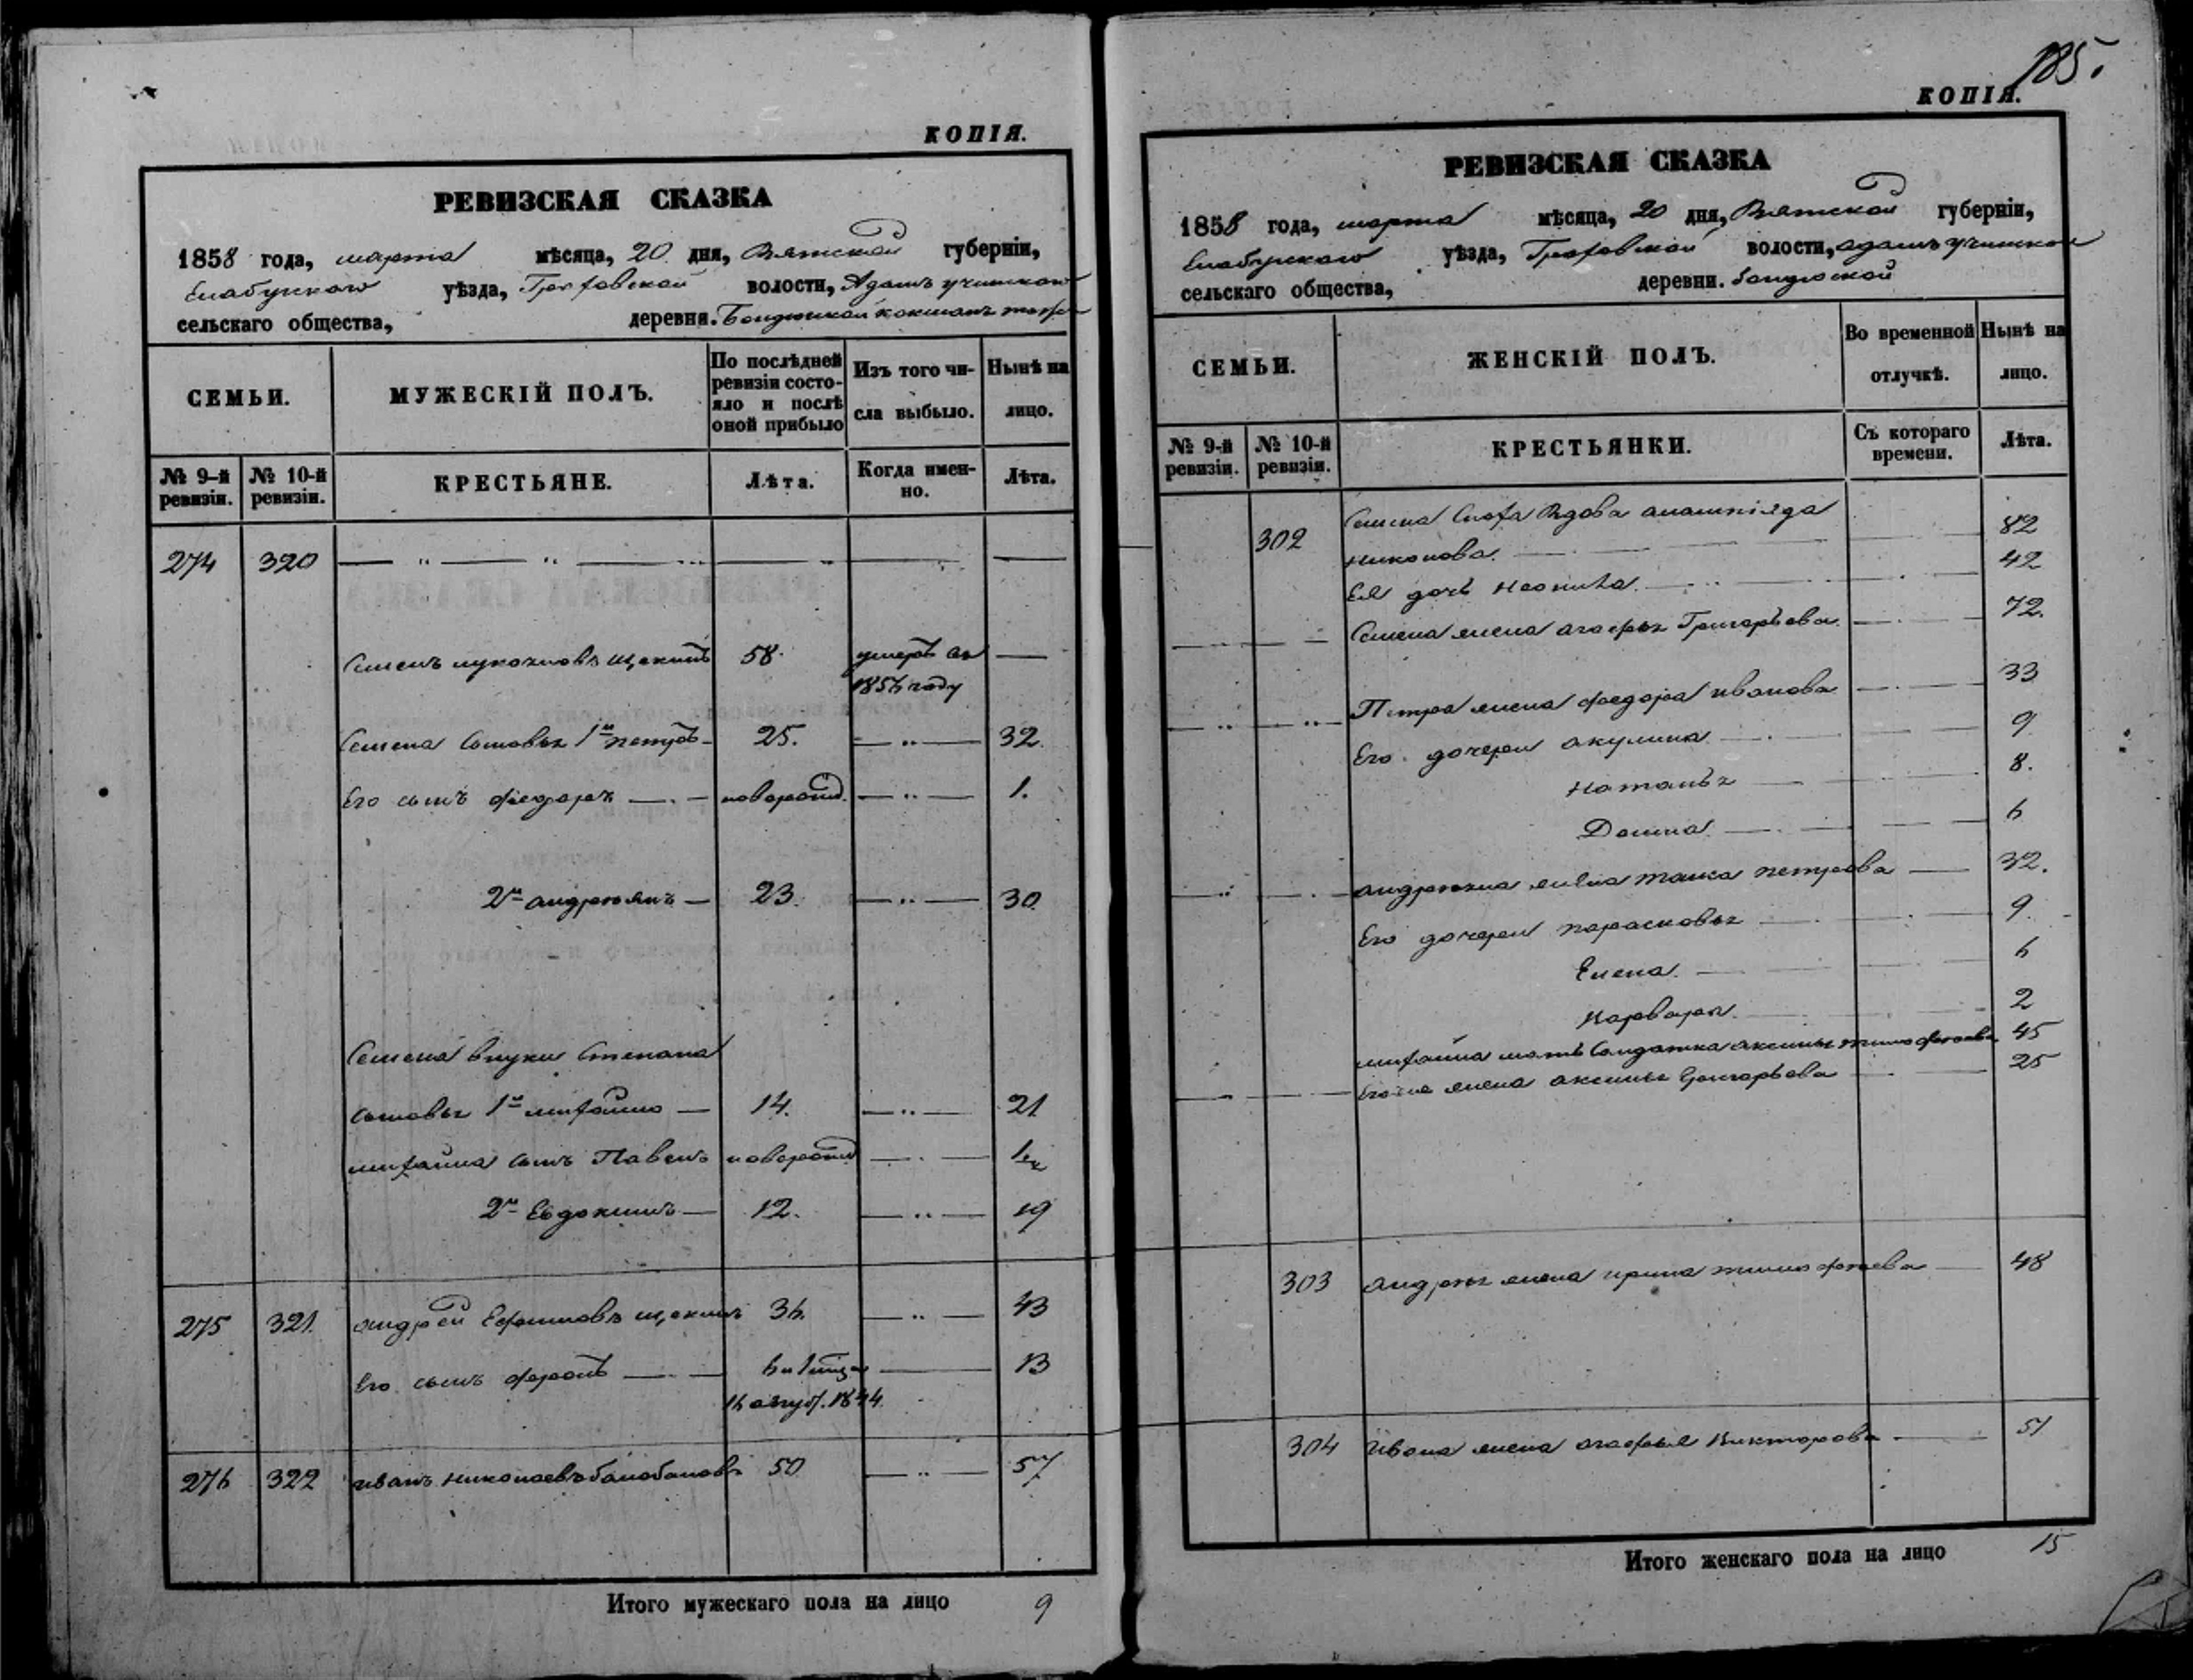 КОПІЯ.
РЕВИЗСКАЯ СКАЗКА
1858 года, марта мѣсяца, 20 дня, Вятской губерніи,
Елабужскаго уѣзда, Граховской волости, Адамъ учинскаго
сельскаго общества, деревни.
СЕМЬИ. МУЖЕСКІЙ ПОЛЪ. По послѣдней ревизіи состояло и послѣ оной прибыло Изъ того числа выбыло. Нынѣ на лицо.
№ 9-й ревизіи. № 10-й ревизіи. КРЕСТЬЯНЕ. Лѣта. Когда именно. Лѣта.
274 320 — „ — „ —
Семенъ Щекинъ 58. умеръ въ —
185 году
Семена сыновья 1й Петръ — 25. — „ — 32.
Его сынъ Федоръ — новорожд. — „ — 1.
2й Андреянъ — 23. — „ — 30.
Семена внуки Степана
сыновья 1й Михайло — 14. — „ — 21
Михайла сынъ Павелъ новорожд — „ — 1
2й Евдокимъ — 12. — „ — 19
275 321. Андрей Ефимовъ Щекинъ 36. — „ — 43
Его сынъ — 13
авгус. 1844.
276 322 Иванъ Николаевъ Балобановъ 50 — „ — 57
Итого мужескаго пола на лицо 9
185.
КОПІЯ.
РЕВИЗСКАЯ СКАЗКА
1858 года, марта мѣсяца, 20 дня, Вятской губерніи,
Елабужскаго уѣзда, Граховской волости, Адамъ учинскаго
сельскаго общества, деревни.
СЕМЬИ. ЖЕНСКІЙ ПОЛЪ. Во временной отлучкѣ. Нынѣ на лицо.
№ 9-й ревизіи. № 10-й ревизіи. КРЕСТЬЯНКИ. Съ котораго времени. Лѣта.
302 Семена Сноха Вдова 82
Ея дочь 42
Семена жена Агафья Григорьева. 72.
Петра жена Федора Иванова 33
Его дочери Акулина 9
Наталья 8.
Домна. 6
Андреяна жена Петрова 32.
Его дочери Парасковья 9
Елена. 6
Варвара. 2
Михайла мать Солдатка Аксинья Тимофеева 45
Его же жена Аксинья Григорьева 25
303 Андрея жена Ирина Тимофеева 48
304 Ивана жена Агафья Викторова 51
Итого женскаго пола на лицо 15